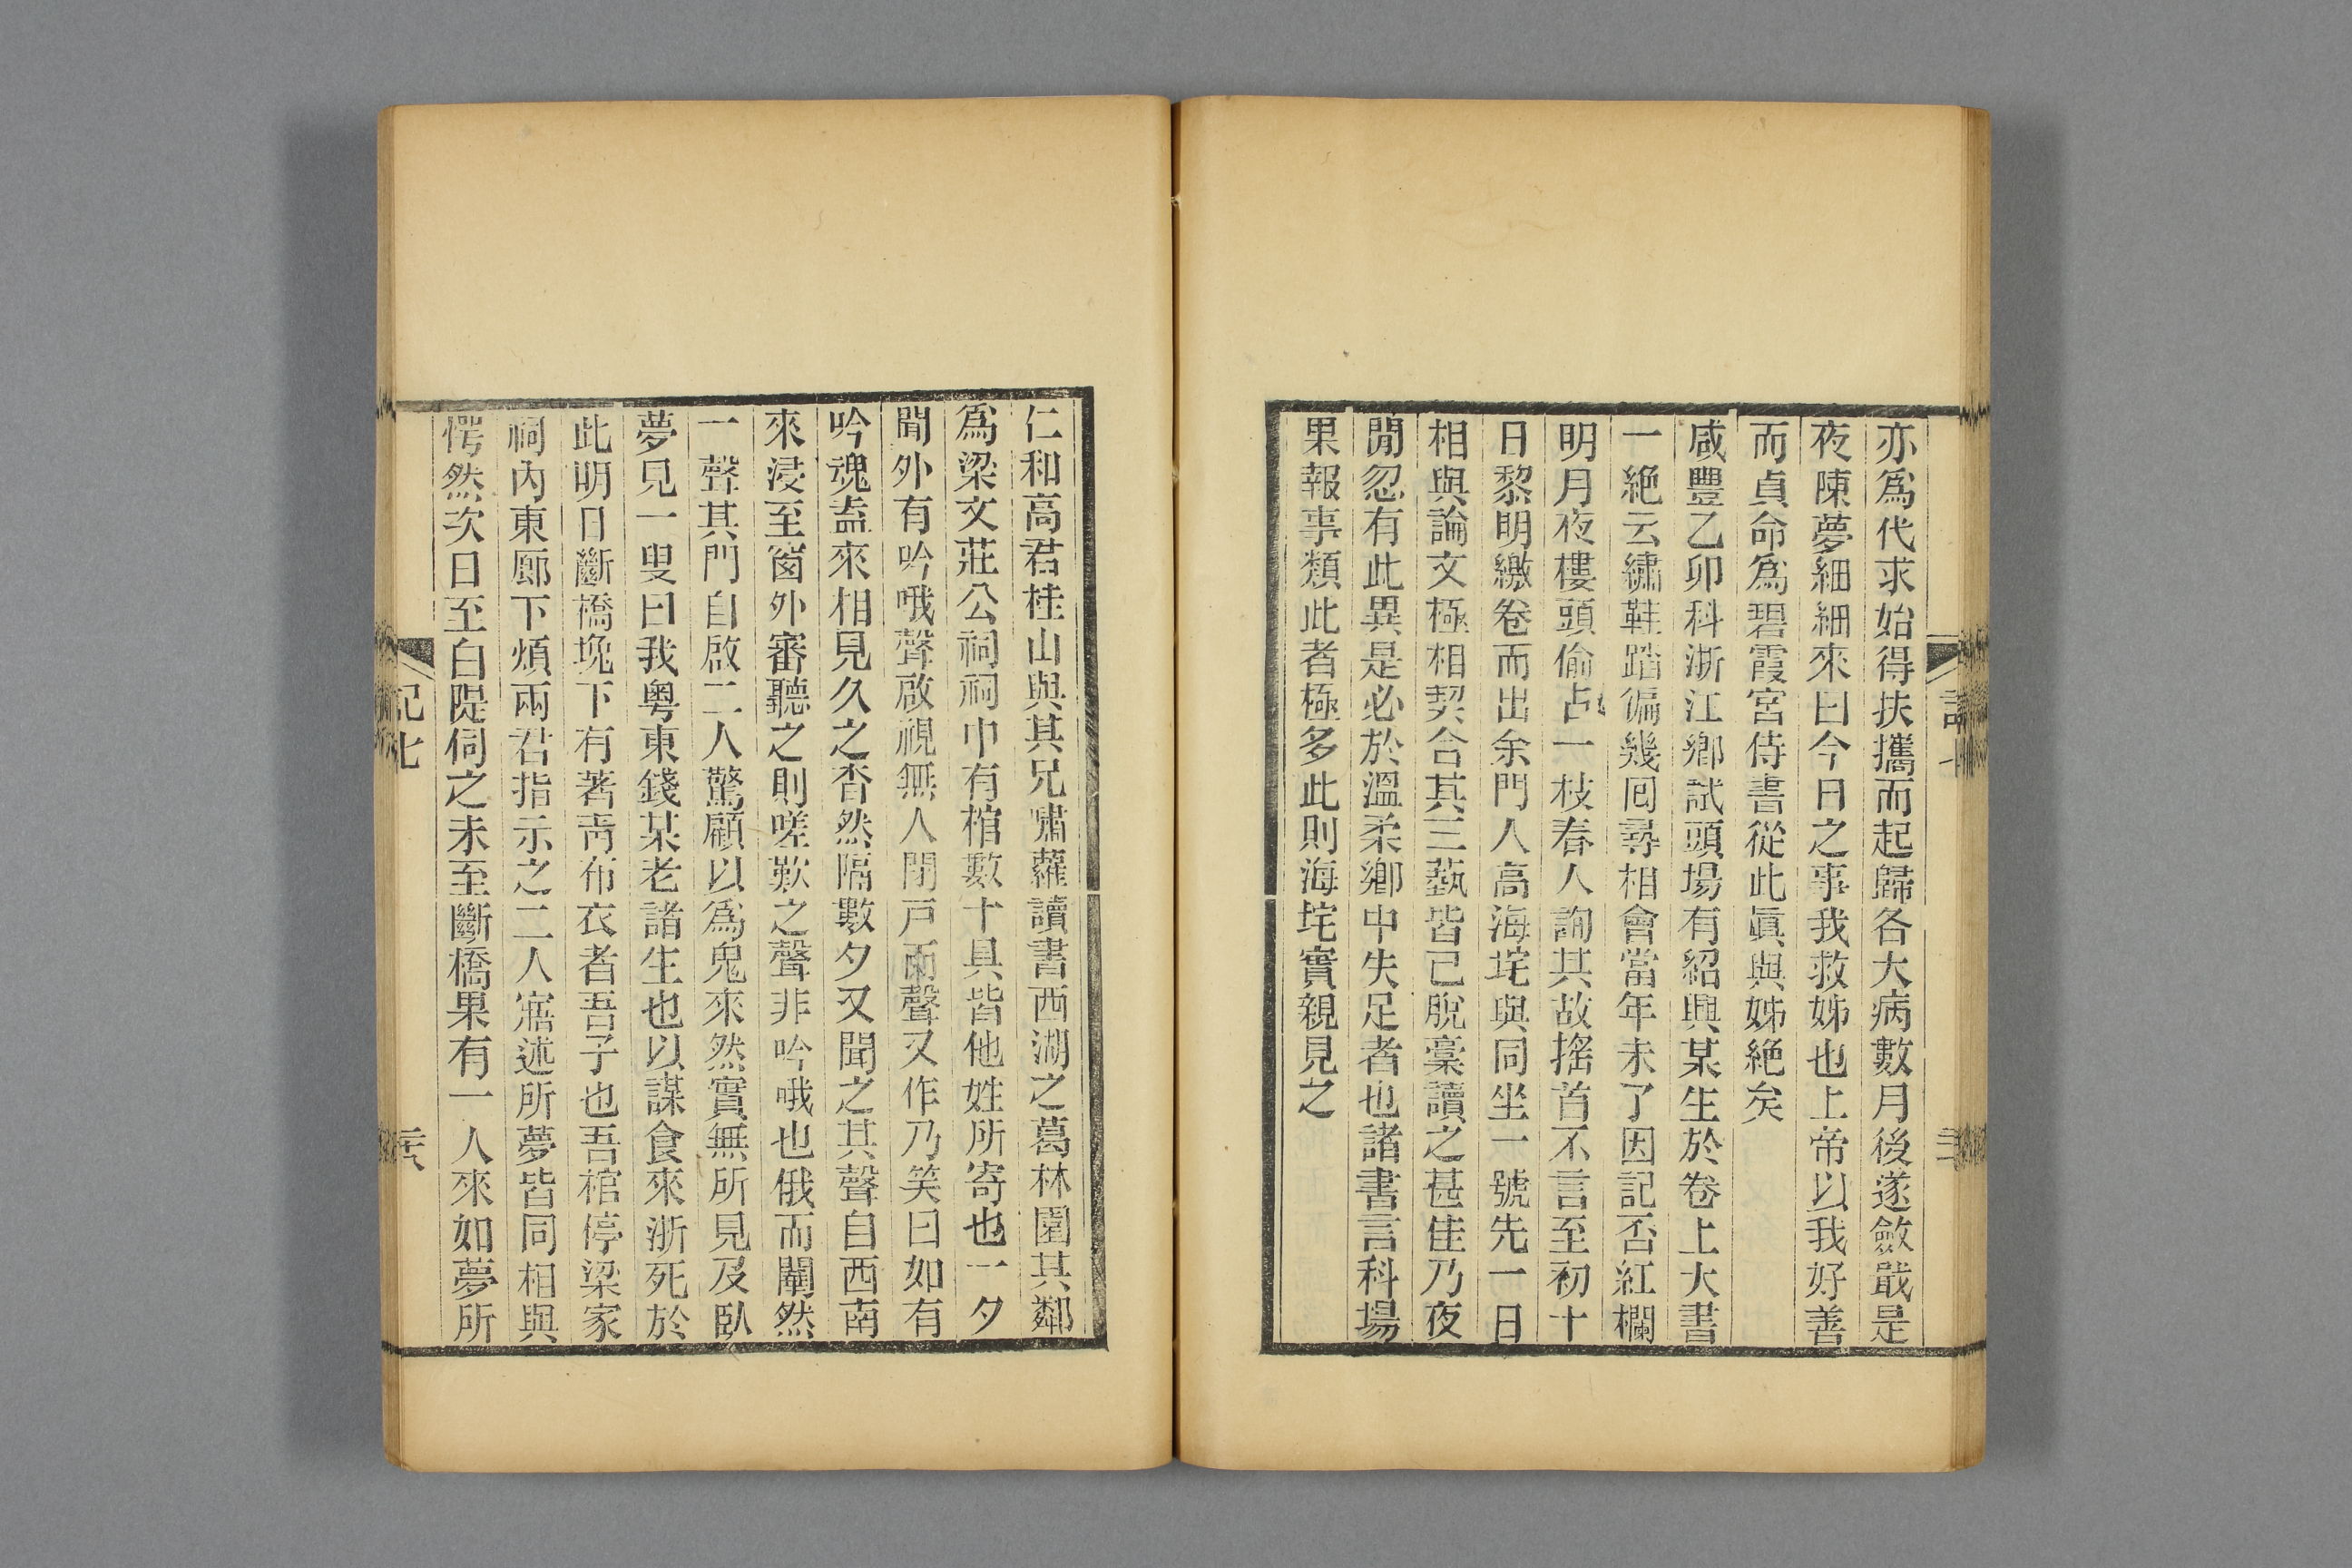 亦爲代求始得扶攜而起歸各大病數月後遂斂戢是
夜陳夢細細來曰今日之事我救姊也上帝以我好善
而貞命爲碧霞宮侍書從此眞與姊絕矣
咸豐乙卯科浙江鄉試頭場有紹興某生於卷上大書
一絕云繡鞋踏徧幾回尋相會當年未了因記否紅欄
明月夜樓頭偷占一枝春人詢其故搖首不言至初十
日黎明繳卷而出余門人高海垞與同坐一號先一日
相與論文極相契合其三藝皆已脫稾讀之甚佳乃夜
閒忽有此異是必於溫柔鄉中失足者也諸書言科場
果報事類此者極多此則海垞實親見之
仁和高君桂山與其兄嘯蘿讀書西湖之葛林園其鄰
爲梁文莊公祠祠中有棺數十具皆他姓所寄也一夕
聞外有吟哦聲啟視無人閉戸而聲又作乃笑曰如有
吟魂盍來相見久之杳然隔數夕又聞之其聲自西南
來浸至窗外審聽之則嗟歎之聲非吟哦也俄而闢然
一聲其門自啟二人驚顧以爲鬼來然實無所見及臥
夢見一叟曰我粵東錢某老諸生也以謀食來浙死於
此明日斷橋堍下有著靑布衣者吾子也吾棺停梁家
祠內東廊下煩兩君指示之二人寤述所夢皆同相與
愕然次日至白隄伺之未至斷橋果有一人來如夢所
記七